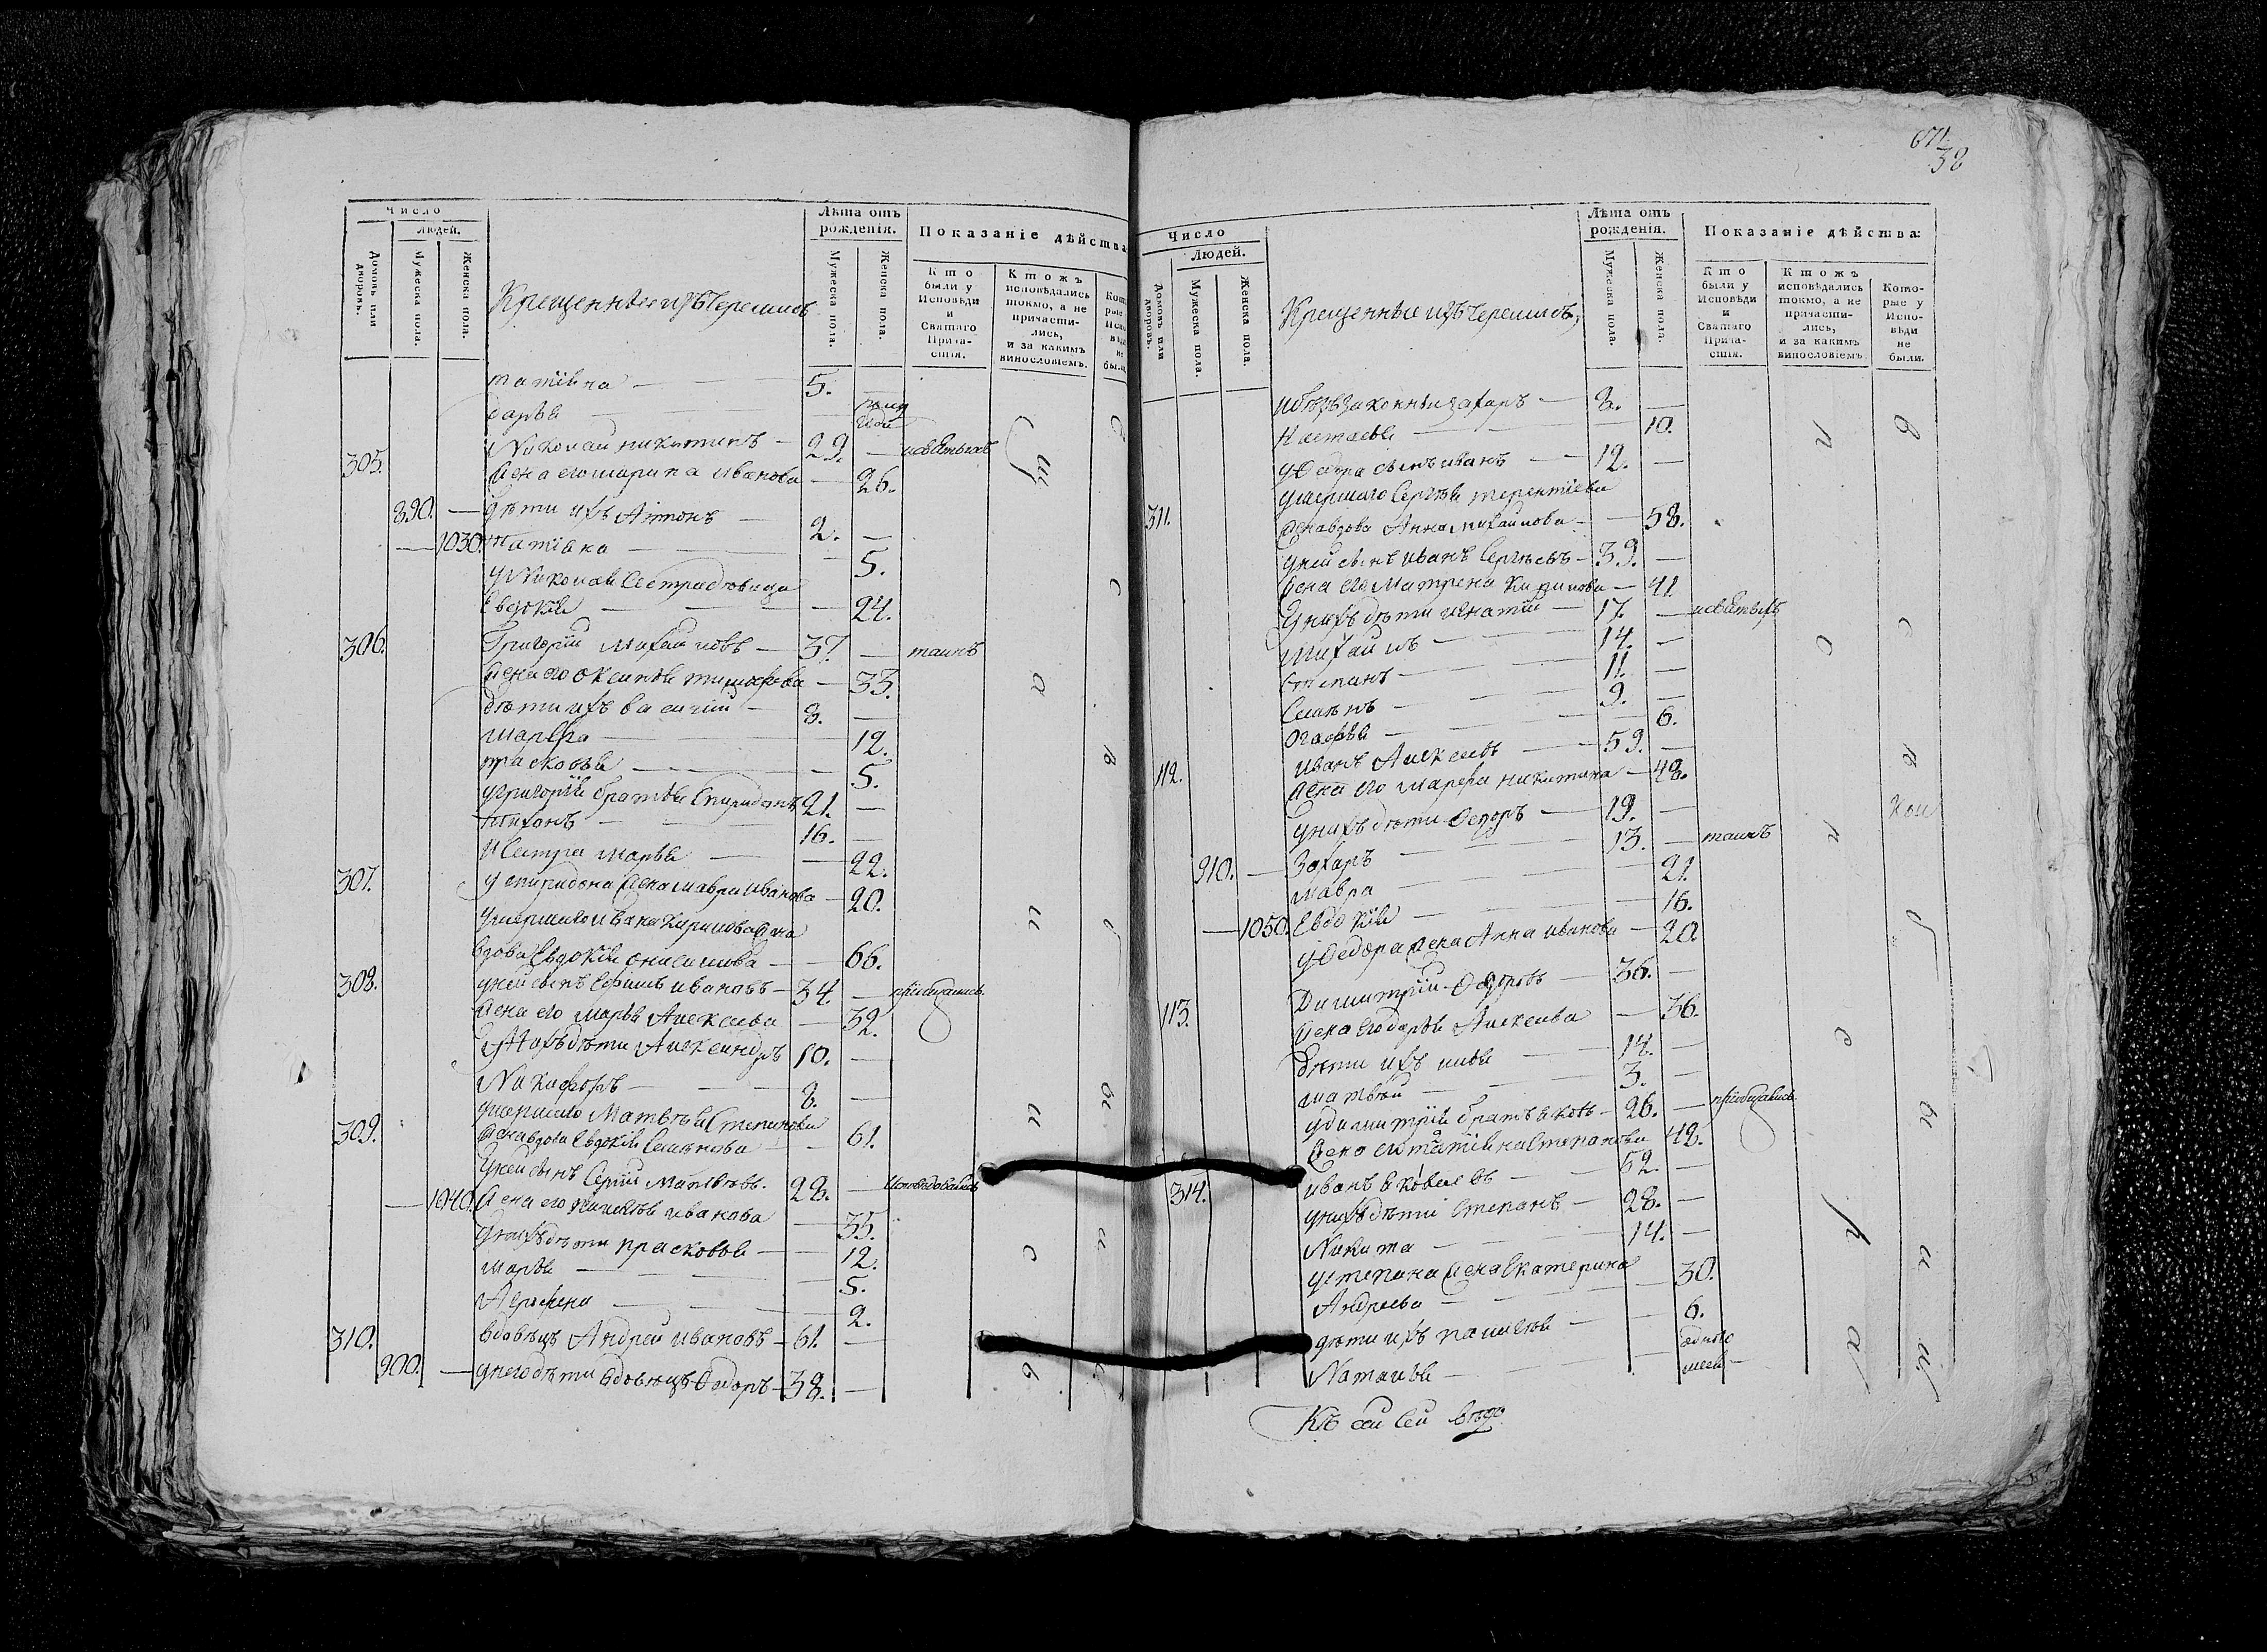 671
38
Число
Людей.
Домовъ или дворовъ.
Мужеска пола.
Женска пола.
Крещенныя изъ черемисъ
Лѣта отъ рожденія.
Мужеска пола.
Женска пола.
Показаніе дѣйства
Кто были у Исповѣди и Святаго Прича-стія.
Ктожъ исповѣдались токмо, а не причасти-лись, и за какимъ винословіемъ.
татіяна 5.
дарья
305. Николай никитинъ 29.
жена его марина иванова 26.
890. дѣти ихъ Антонъ 2.
1030. татіяна 5.
у Николая сестра девица
Евдокія 24.
306. Григорій михаиловъ 37. таинъ
жена его 33.
дѣти ихъ василій 8.
марфа 12.
прасковья 5.
у григорія братья Спиридонъ 21.
тихонъ 16.
и сестра марья 22.
307. у спиридона жена мавра иванова 20.
умершаго ивана кирилова жена
вдова Евдокія онисимова 66.
308. у ней сынъ Ефимъ ивановъ 34. пріобщались
жена его марья Алексеева 32.
у нихъ дѣти Александръ 10.
Никифоръ 8.
309. умершаго Матвѣя Степанова
жена вдова Евдокія Семенова 61.
у ней сынъ Сергій Матвѣевъ 28.
1040. жена его пелагѣя иванова 35.
у нихъ дѣти прасковья 12.
марья 5.
Аграфена 2.
310. вдовецъ Андрей ивановъ 61.
900. у него дѣти вдовецъ Ѳедоръ 38.
Число
Людей.
Домовъ или дворовъ.
Мужеска пола.
Женска пола.
Крещенныя изъ черемисъ
Лѣта отъ рожденія.
Мужеска пола.
Женска пола.
Показаніе дѣйства:
Кто были у Исповѣди и Святаго Прича-стія.
Ктожъ исповѣдались токмо, а не причасти-лись, и за какимъ винословіемъ.
Кото-рые у Испо-вѣди не были.
захаръ 8.
Настасья 10.
у Ѳедора сынъ иванъ 12.
умершаго Сергѣя терентіева
311. жена вдова Анна михаилова 58.
у ней сынъ иванъ Сергѣевъ 39.
жена его Матрена Кирилова 41.
у нихъ дѣти игнатій 17.
михаилъ 14.
степанъ 11.
Семенъ 9.
огафья 6.
112. иванъ Алексеевъ 59.
жена его марфа никитина 48.
у нихъ дѣти Ѳедоръ 19.
910. Захаръ 13. таинъ
мавра 21.
1050. Евдокія 16.
у Ѳедора жена Анна иванова 20.
113. Димитрій Ѳедоровъ 36.
жена его дарья Алексеева 36.
дѣти ихъ илья 14.
матвѣй 3.
у димитрія братъ яковъ 26. пріобщались
жена его татіяна Степанова 42.
314. иванъ яковлевъ 52.
у нихъ дѣти Степанъ 28.
Никита 14.
у степана жена Екатерина
Андреева 30.
дѣти ихъ пелагѣя 6.
Наталья